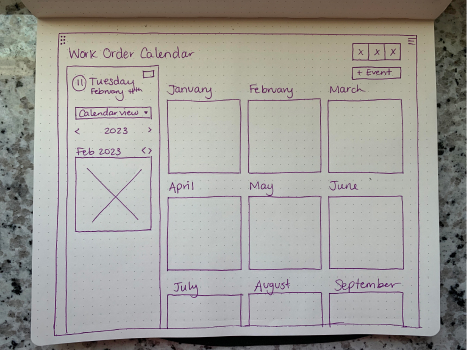 Work Order Calendar
x x x
+ Event
11 Tuesday
February 11th
Calendar view
< 2023 >
Feb 2023 < >
January February March
April May June
July August September